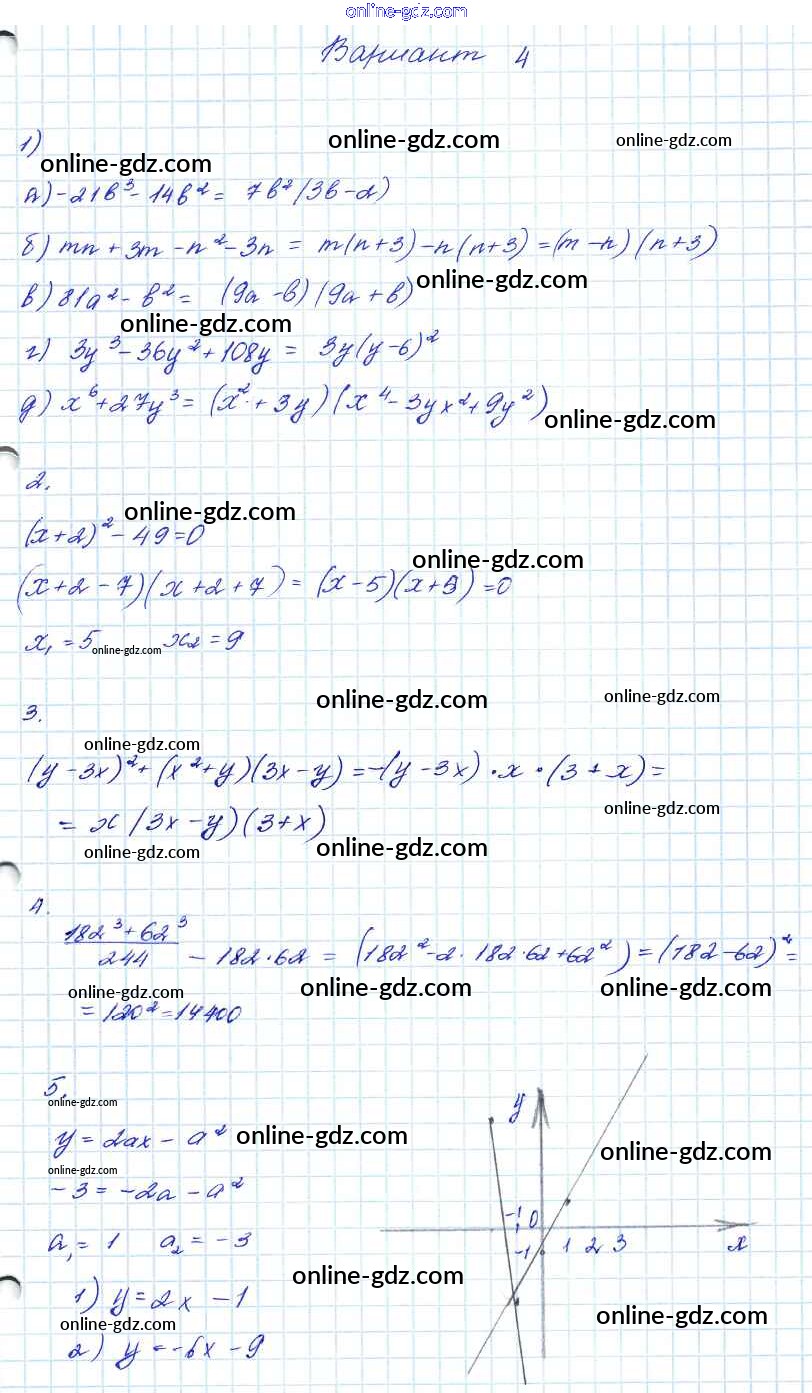 online-gdz.com
Вариант 4
1)
online-gdz.com
online-gdz.com
online-gdz.com
а) -21b³ - 14b² = 7b²(3b - 2)
б) mn + 3m - n² - 3n = m(n+3) - n(n+3) = (m - n)(n+3)
в) 81a² - b² = (9a - b)(9a + b)
online-gdz.com
online-gdz.com
г) 3y³ - 36y² + 108y = 3y(y - 6)²
д) x⁶ + 27y³ = (x² + 3y)(x⁴ - 3yx² + 9y²)
online-gdz.com
2.
online-gdz.com
(x+2)² - 49 = 0
online-gdz.com
(x+2-7)(x+2+7) = (x-5)(x+9) = 0
x₁ = 5 x₂ = 9
online-gdz.com
3.
online-gdz.com
online-gdz.com
online-gdz.com
(y - 3x)² + (x² + y)(3x - y) = -(y - 3x) · x · (3 + x) =
online-gdz.com
= x(3x - y)(3 + x)
online-gdz.com
online-gdz.com
4.
(182³ + 62³)/244 - 182·62 = (182² - 2·182·62 + 62²) = (182 - 62)² =
online-gdz.com
online-gdz.com
online-gdz.com
= 120² = 14400
5.
online-gdz.com
y = 2ax - a²
online-gdz.com
online-gdz.com
-3 = -2a - a²
a₁ = 1 a₂ = -3
online-gdz.com
1) y = 2x - 1
online-gdz.com
2) y = -6x - 9
y
online-gdz.com
-1 0
-1 1 2 3 x
online-gdz.com